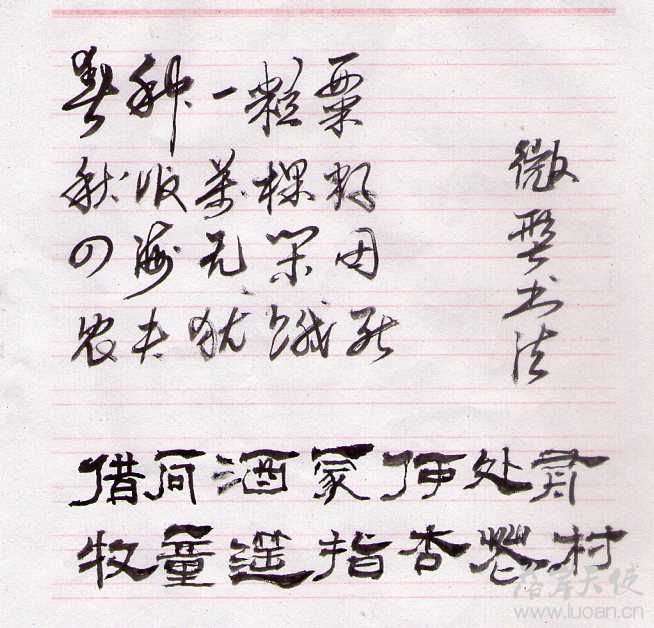 春种一粒粟
秋收萬棵籽
四海无闲田
农夫犹饿死
微型书法
借问酒家何处有
牧童遥指杏花村
www.luoan.cn